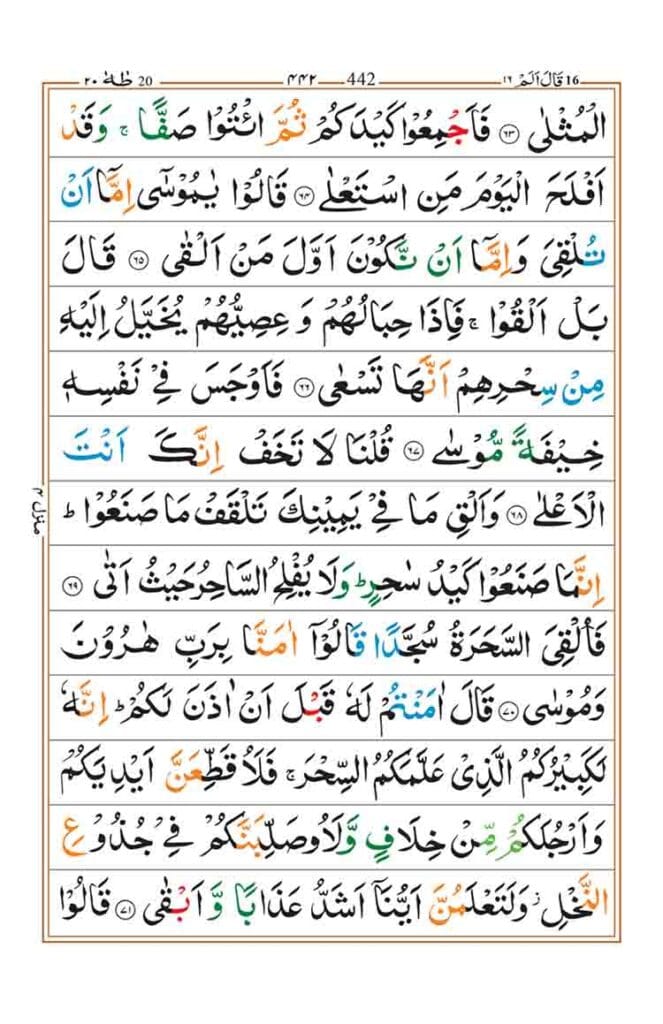 ١٦ قَالَ اَلَمْ 16 442 ٤٤٢ 20 طٰهٰ ٢٠
الْمُثْلٰى ﴿٦٣﴾ فَاَجْمِعُوْا كَيْدَكُمْ ثُمَّ ائْتُوْا صَفًّا ۚ وَقَدْ
اَفْلَحَ الْيَوْمَ مَنِ اسْتَعْلٰى ﴿٦٤﴾ قَالُوْا يٰمُوْسٰٓى اِمَّاۤ اَنْ
تُلْقِىَ وَاِمَّاۤ اَنْ نَّكُوْنَ اَوَّلَ مَنْ اَلْقٰى ﴿٦٥﴾ قَالَ
بَلْ اَلْقُوْا ۚ فَاِذَا حِبَالُهُمْ وَ عِصِيُّهُمْ يُخَيَّلُ اِلَيْهِ
مِنْ سِحْرِهِمْ اَنَّهَا تَسْعٰى ﴿٦٦﴾ فَاَوْجَسَ فِىْ نَفْسِهٖ
خِيْفَةً مُّوْسٰى ﴿٦٧﴾ قُلْنَا لَا تَخَفْ اِنَّكَ اَنْتَ
الْاَعْلٰى ﴿٦٨﴾ وَاَلْقِ مَا فِىْ يَمِيْنِكَ تَلْقَفْ مَا صَنَعُوْا ؕ
اِنَّمَا صَنَعُوْا كَيْدُ سٰحِرٍ ؕ وَلَا يُفْلِحُ السَّاحِرُ حَيْثُ اَتٰى ﴿٦٩﴾
فَاُلْقِىَ السَّحَرَةُ سُجَّدًا قَالُوْۤا اٰمَنَّا بِرَبِّ هٰرُوْنَ
وَمُوْسٰى ﴿٧٠﴾ قَالَ اٰمَنْتُمْ لَهٗ قَبْلَ اَنْ اٰذَنَ لَكُمْ ؕ اِنَّهٗ
لَكَبِيْرُكُمُ الَّذِىْ عَلَّمَكُمُ السِّحْرَ ۚ فَلَاُقَطِّعَنَّ اَيْدِيَكُمْ
وَاَرْجُلَكُمْ مِّنْ خِلَافٍ وَّلَاُوصَلِّبَنَّكُمْ فِىْ جُذُوْعِ
النَّخْلِ ۫ وَلَتَعْلَمُنَّ اَيُّنَاۤ اَشَدُّ عَذَابًا وَّ اَبْقٰى ﴿٧١﴾ قَالُوْا
منزل ٤